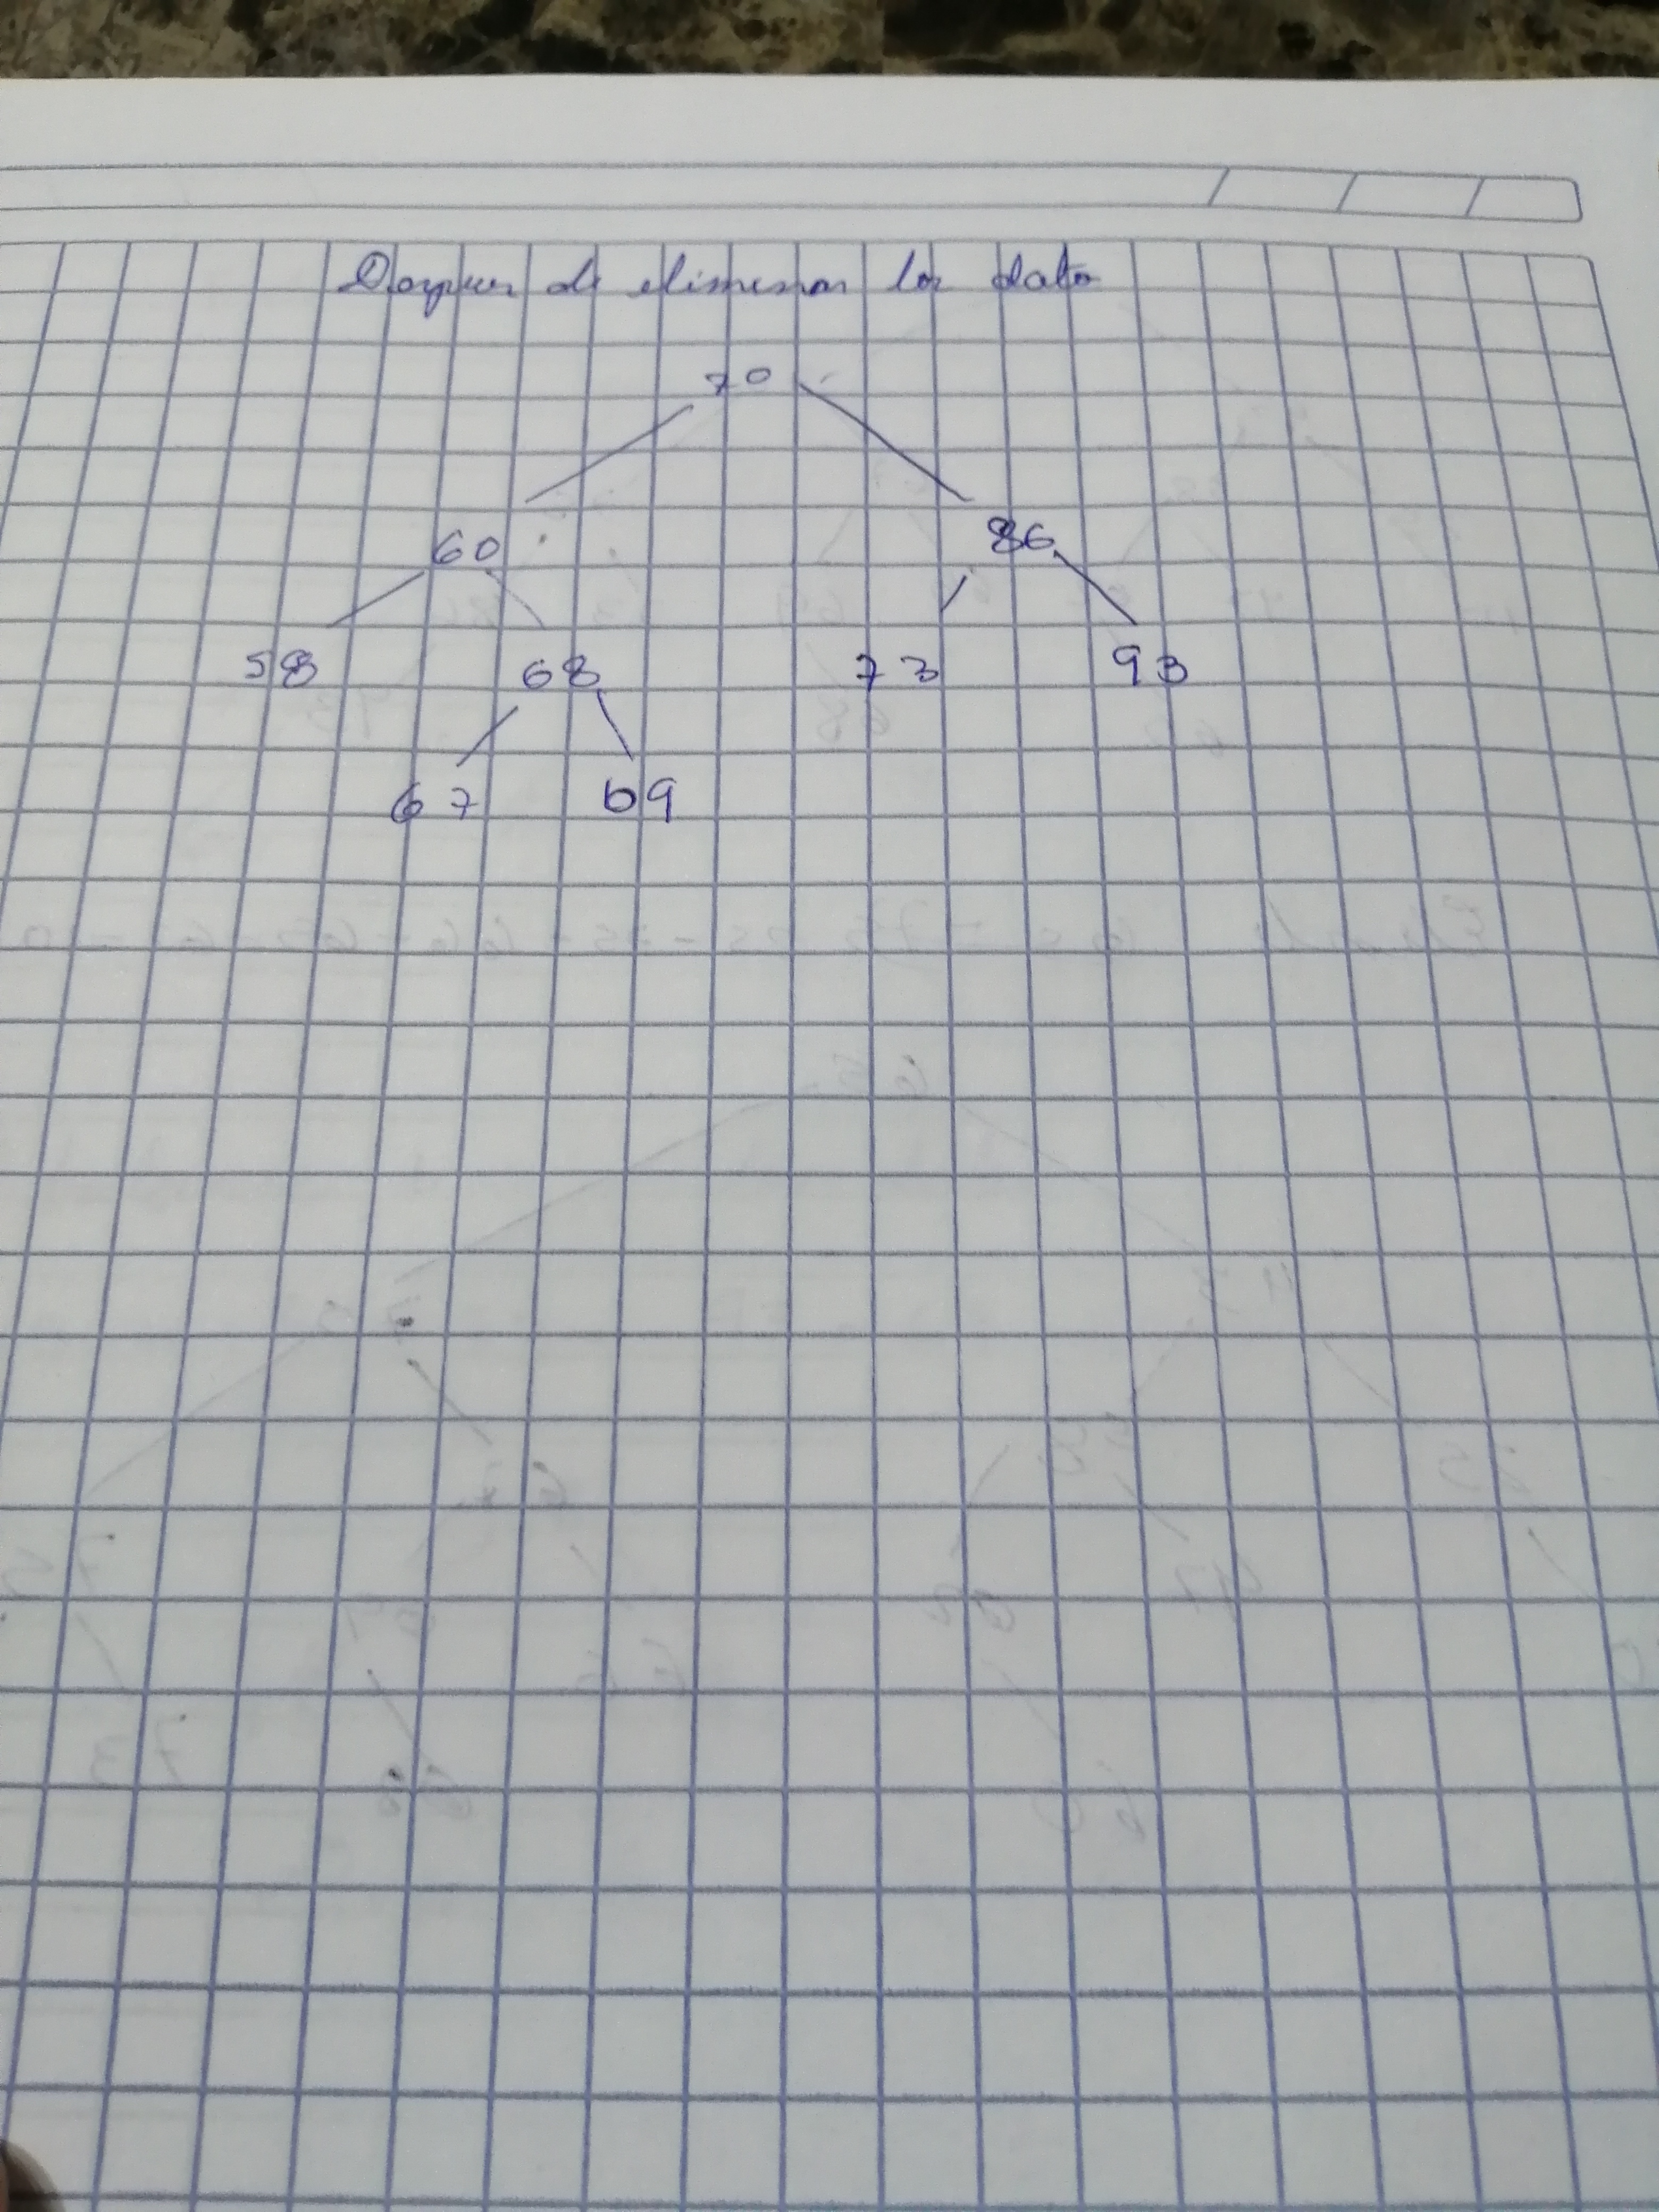 Despues de eliminar los dato
70
60 86
58 68 73 93
67 69